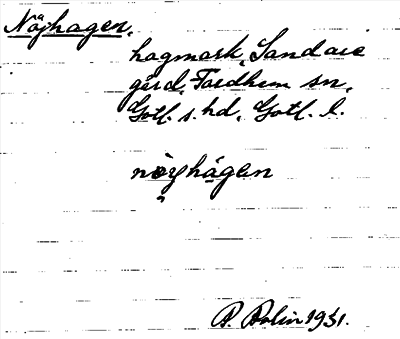 Nöjhagen,
hagmark, Sandare
gård, Fardhem sn,
Gotl. s. hd, Gotl. l.
nòyhágen
P. Bolin 1931.